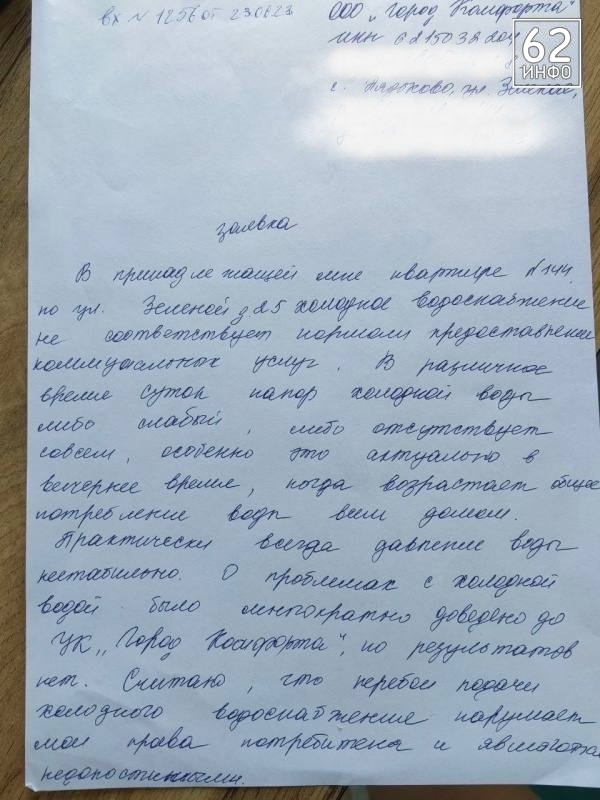 вх № 1256 от 230623
ООО "Город Комфорта"
ИНН 6215032204
62
ИНФО
с. Дядьково, ул Зеленая,
заявка
В принадлежащей мне квартире №144
по ул. Зеленой д 25 холодное водоснабжение
не соответствует нормам предоставления
коммунальных услуг. В различное
время суток напор холодной воды
либо слабый, либо отсутствует
совсем, особенно это актуально в
вечернее время, когда возрастает общее
потребление воды всем домом.
Практически всегда давление воды
нестабильно. О проблемах с холодной
водой было многократно доведено до
УК "Город Комфорта", но результатов
нет. Считаю, что перебои подачи
холодного водоснабжения нарушает
мои права потребителя и являются
недопустимыми.